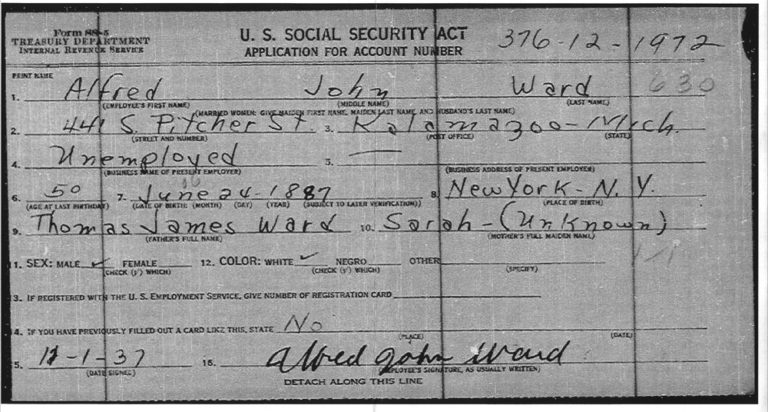 Form SS-5
TREASURY DEPARTMENT
INTERNAL REVENUE SERVICE
U. S. SOCIAL SECURITY ACT
APPLICATION FOR ACCOUNT NUMBER
376-12-1972
PRINT NAME
1. Alfred John Ward 630
(EMPLOYEE'S FIRST NAME) (MIDDLE NAME) (LAST NAME)
(MARRIED WOMEN: GIVE MAIDEN FIRST NAME, MAIDEN LAST NAME, AND HUSBAND'S LAST NAME)
2. 441 S. Pitcher St. 3. Kalamazoo - Mich.
(STREET AND NUMBER) (POST OFFICE) (STATE)
4. Unemployed 5. —
(BUSINESS NAME OF PRESENT EMPLOYER) (BUSINESS ADDRESS OF PRESENT EMPLOYER)
6. 50 7. June 24-1887 8. New York - N. Y.
(AGE AT LAST BIRTHDAY) (DATE OF BIRTH: (MONTH) (DAY) (YEAR) (SUBJECT TO LATER VERIFICATION)) (PLACE OF BIRTH)
9. Thomas James Ward 10. Sarah - (Unknown)
(FATHER'S FULL NAME) (MOTHER'S FULL MAIDEN NAME)
11. SEX: MALE ✓ FEMALE 12. COLOR: WHITE ✓ NEGRO OTHER
(CHECK (✓) WHICH) (CHECK (✓) WHICH) (SPECIFY)
3. IF REGISTERED WITH THE U. S. EMPLOYMENT SERVICE, GIVE NUMBER OF REGISTRATION CARD
4. IF YOU HAVE PREVIOUSLY FILLED OUT A CARD LIKE THIS, STATE No
(PLACE) (DATE)
5. 11-1-37 16. Alfred John Ward
(DATE SIGNED) (EMPLOYEE'S SIGNATURE, AS USUALLY WRITTEN)
DETACH ALONG THIS LINE